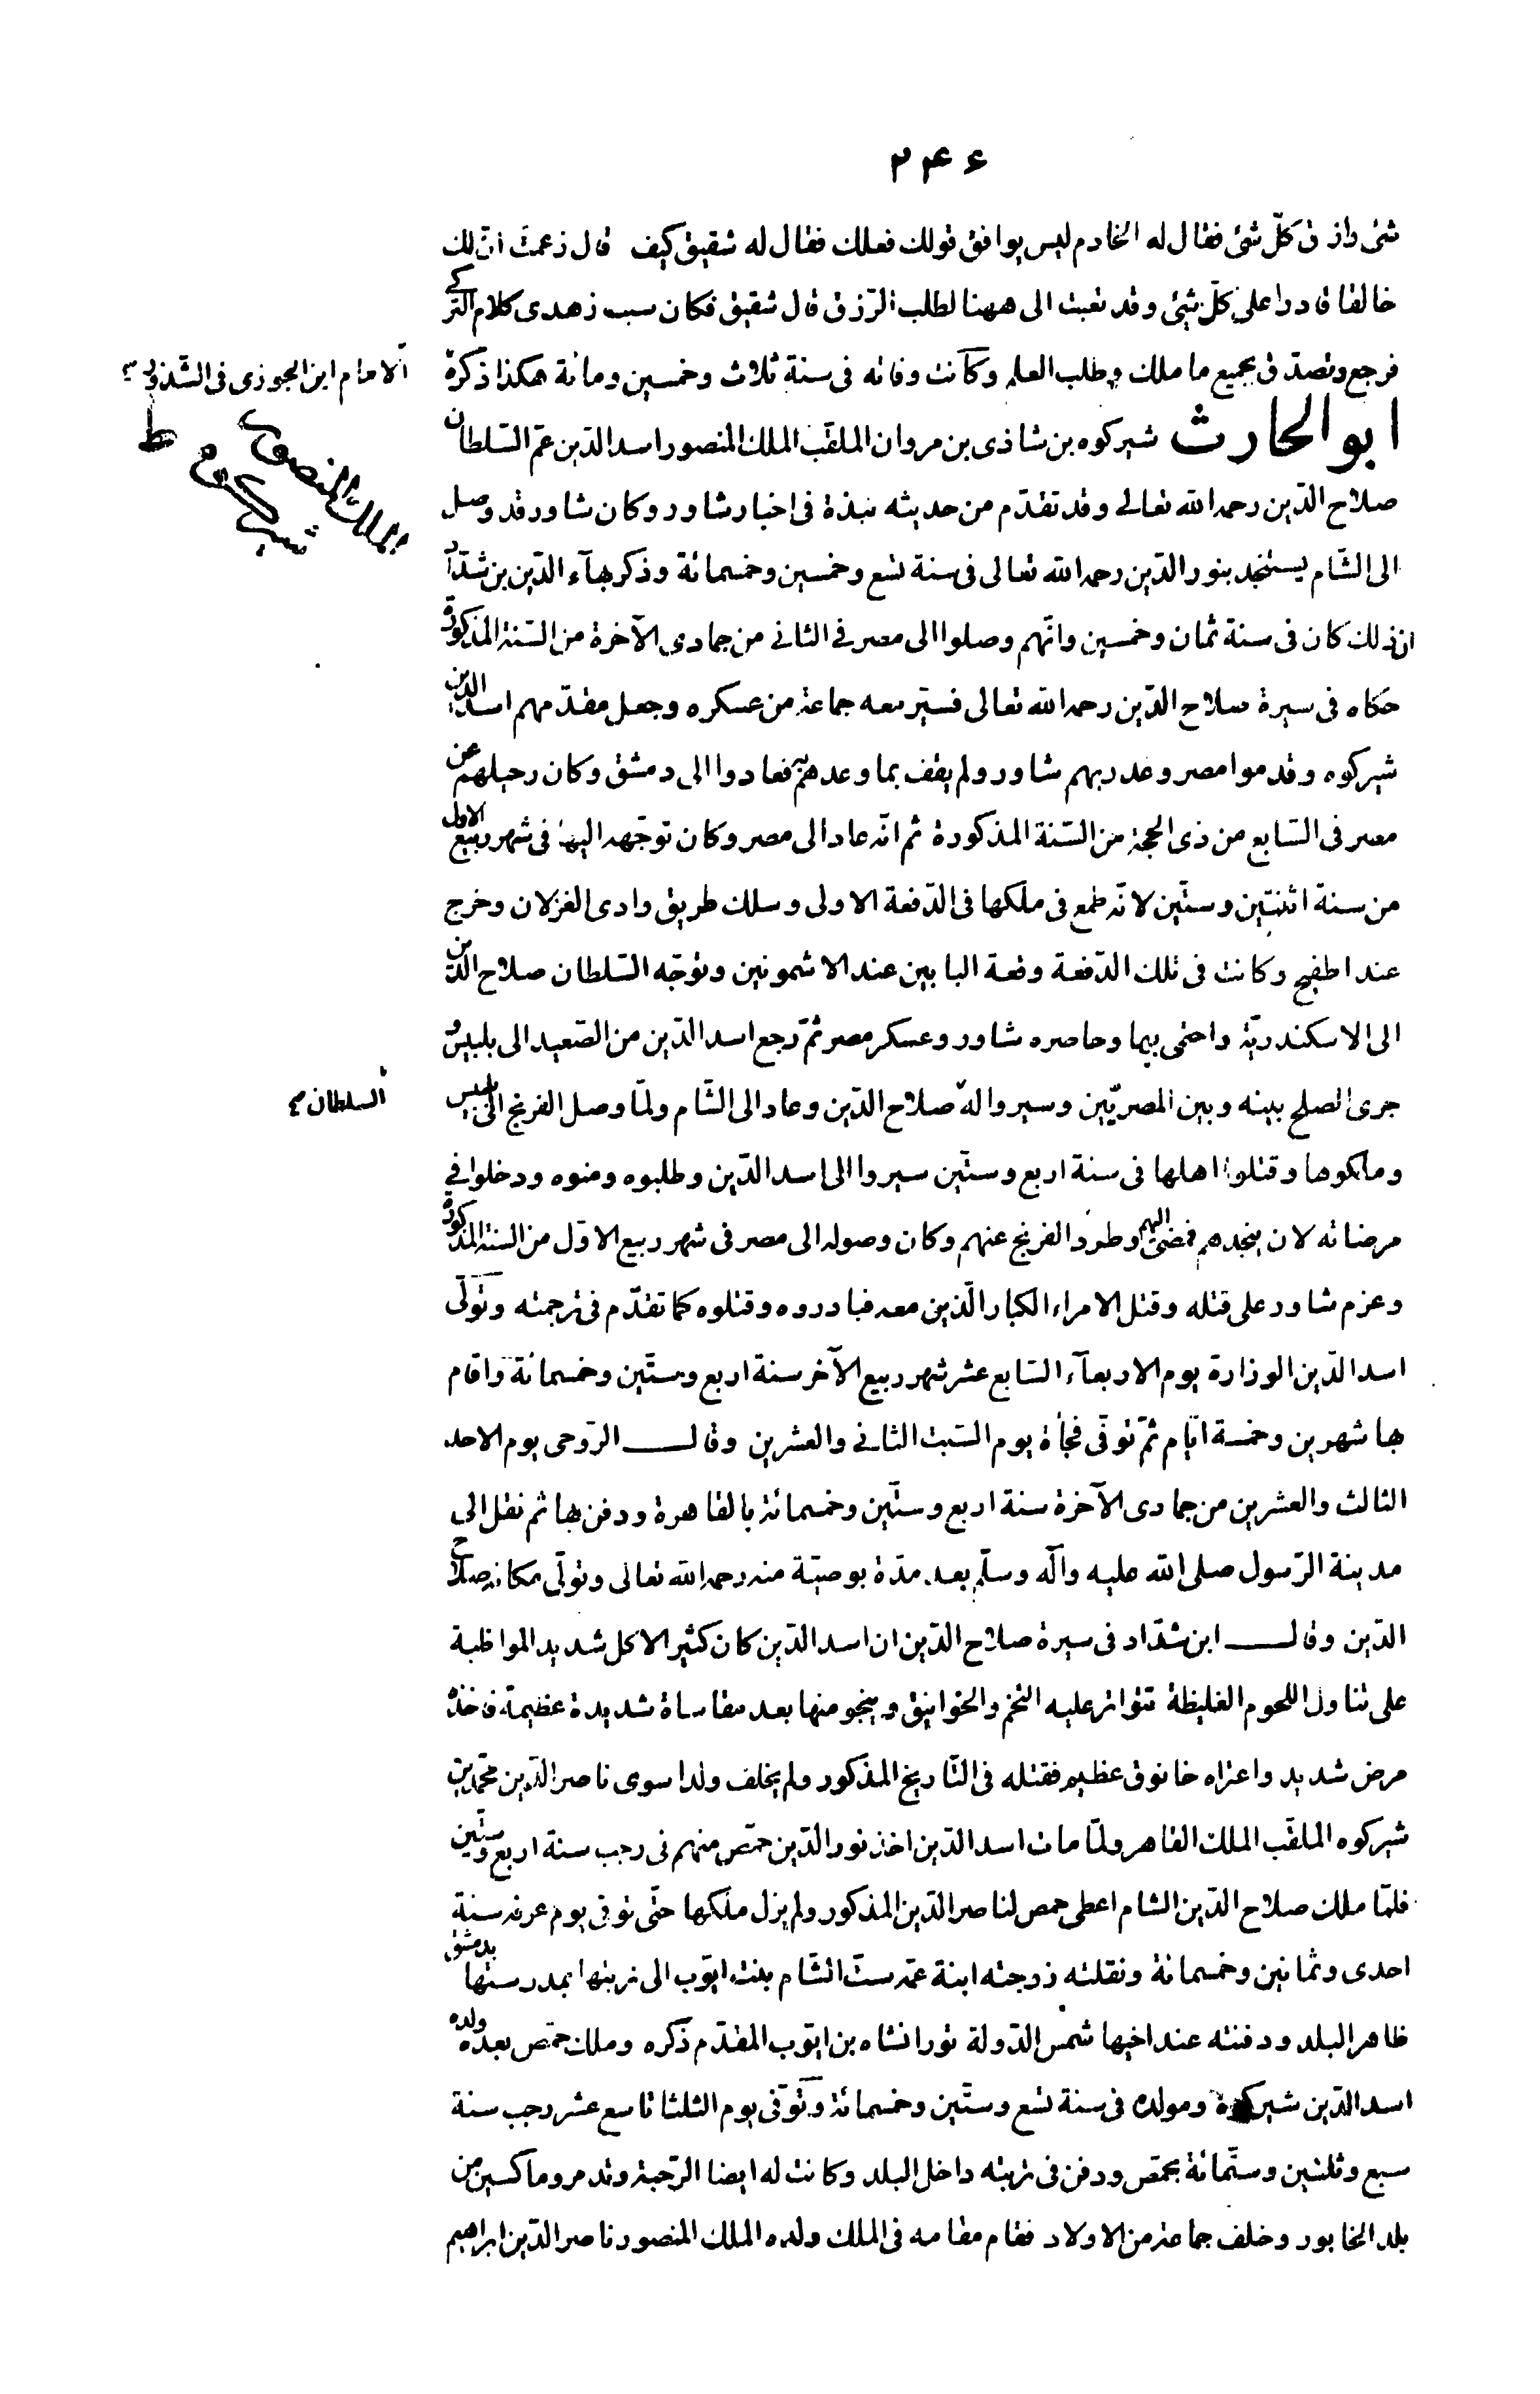 ۲۴۶
شئ وازق كلّ شئ فقال له الخادم ليس يوافق قولك فعلك فقال له شقيق كيف قال زعمت انّ لك
خالقا قادرا على كلّ شئ وقد تعبت الى ههنا لطلب الرّزق قال شقيق فكان سبب زهدى كلام التركى
فرجع وتصدّق بجميع ما ملك وطلب العلم وكانت وفاته فى سنة ثلاث وخمسين ومائة هكذا ذكره
الامام ابن الجوزى فى الشذور
ابو الحارث شيركوه بن شاذى بن مروان الملقّب الملك المنصور اسد الدّين عمّ السّلطان
الملك المنصور
شيركوه
صلاح الدّين رحمه الله تعالى وقد تقدّم من حديثه نبذة فى اخبار شاور وكان شاور قد وصل
الى الشّام يستنجد بنور الدّين رحمه الله تعالى فى سنة تسع وخمسين وخمسمائة وذكر بهآء الدّين بن شدّاد
ان ذلك كان فى سنة ثمان وخمسين وانّهم وصلوا الى مصر فى الثانى من جمادى الآخرة من السّنة المذكورة
حكاه فى سيرة صلاح الدّين رحمه الله تعالى فسيّر معه جماعة من عسكره وجعل مقدّمهم اسد الدين
شيركوه وقدموا مصر وغدر بهم شاور ولم يف بما وعدهم به فعادوا الى دمشق وكان رحيلهم عن
مصر فى السّابع من ذى الحجة من السّنة المذكورة ثم انّه عاد الى مصر وكان توجّهه اليها فى شهر ربيع الاول
من سنة اثنتين وستّين لانّه طمع فى ملكها فى الدّفعة الاولى وسلك طريق وادى الغزلان وخرج
عند اطفيح وكانت فى تلك الدّفعة وقعة البابين عند الاشمونين وتوجّه السّلطان صلاح الدّين
الى الاسكندريّة واحتمى بها وحاصره شاور وعسكر مصر ثمّ رجع اسد الدّين من الصّعيد الى بلبيس و
جرى الصلح بينه وبين المصريّين وسيروا له صلاح الدّين وعاد الى الشّام ولمّا وصل الفرنج الى بلبيس
السلطان
وملكوها وقتلوا اهلها فى سنة اربع وستّين سيروا الى اسد الدّين وطلبوه ومنوه ودخلوا فى
مرضاته لان ينجدهم فمضى اليهم وطرد الفرنج عنهم وكان وصوله الى مصر فى شهر ربيع الاوّل من السنة المذكورة
وعزم شاور على قتله وقتل الامراء الكبار الّذين معه فبادروه وقتلوه كما تقدّم فى ترجمته وتولّى
اسد الدّين الوزارة يوم الاربعآء السّابع عشر شهر ربيع الآخر سنة اربع وستّين وخمسمائة واقام
بها شهرين وخمسة ايّام ثمّ توفّى فجأة يوم السّبت الثانى والعشرين وقال الرّوحى يوم الاحد
الثالث والعشرين من جمادى الآخرة سنة اربع وستّين وخمسمائة بالقاهرة ودفن بها ثم نقل الى
مدينة الرّسول صلى الله عليه وآله وسلّم بعد مدّة بوصيّة منه رحمه الله تعالى وتولّى مكانه صلاح
الدّين وقال ابن شدّاد فى سيرة صلاح الدّين ان اسد الدّين كان كثير الاكل شديد المواظبة
على تناول اللحوم الغليظة تتواتر عليه التخم والخوانيق وينجو منها بعد مقاساة شديدة عظيمة فاخذه
مرض شديد واعتراه خانوق عظيم فقتله فى التّاريخ المذكور ولم يخلف ولدا سوى ناصر الدّين محمّد بن
شيركوه الملقّب الملك القاهر ولمّا مات اسد الدّين اخذ نور الدّين حمص منهم فى رجب سنة اربع وستّين
فلمّا ملك صلاح الدّين الشام اعطى حمص لناصر الدّين المذكور ولم يزل ملكها حتّى توفى يوم عرفة سنة
احدى وثمانين وخمسمائة ونقلته زوجته ابنة عمّه ستّ الشّام بنت ايّوب الى تربتها بمدرستها بدمشق
ظاهر البلد ودفنته عند اخيها شمس الدّولة تورانشاه بن ايّوب المقدّم ذكره وملك حمص بعده ولده
اسد الدّين شيركوه ومولده فى سنة تسع وستّين وخمسمائة وتوفّى يوم الثلثا تاسع عشر رجب سنة
سبع وثلثين وستّمائة بحمص ودفن فى تربته داخل البلد وكانت له ايضا الرّحبة وتدمر وماكسين من
بلد الخابور وخلف جماعة من الاولاد فقام مقامه فى الملك ولده الملك المنصور ناصر الدّين ابراهيم